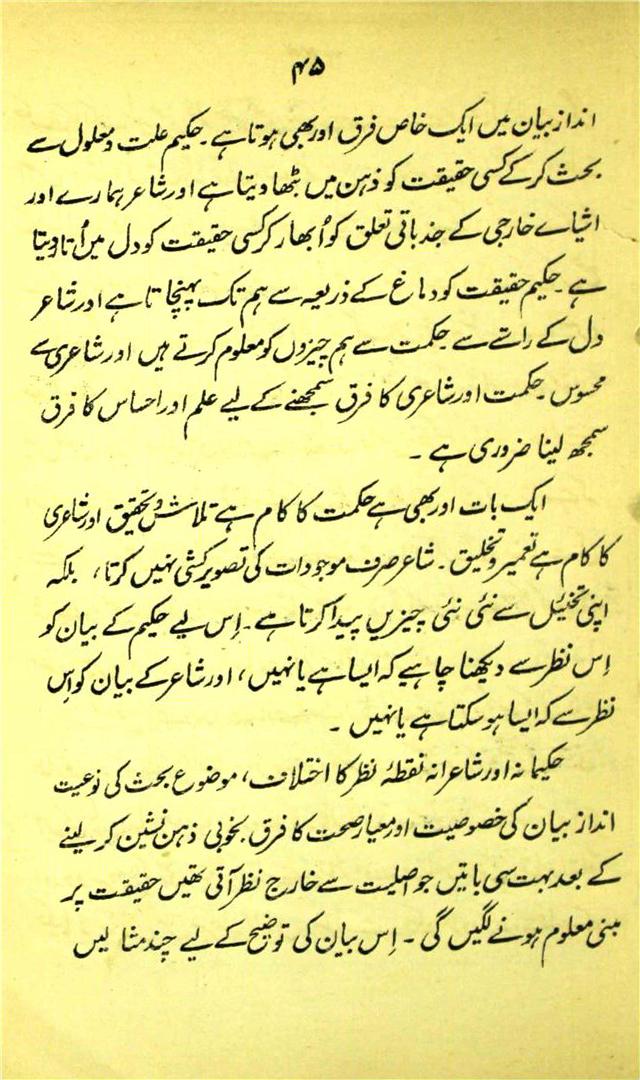 ۴۵
انداز بیان میں ایک خاص فرق اور بھی ہوتا ہے۔ حکیم علت و معلول سے
بحث کرکے کسی حقیقت کو ذہن میں بٹھا دیتا ہے اور شاعر ہمارے اور
اشیاے خارجی کے جذباتی تعلق کو اُبھار کر کسی حقیقت کو دل میں اُتار دیتا
ہے۔ حکیم حقیقت کو دماغ کے ذریعہ سے ہم تک پہنچاتا ہے اور شاعر
دل کے راستے سے۔ حکمت سے ہم چیزوں کو معلوم کرتے ہیں اور شاعری سے
محسوس۔ حکمت اور شاعری کا فرق سمجھنے کے لیے علم اور احساس کا فرق
سمجھ لینا ضروری ہے۔
ایک بات اور بھی ہے حکمت کا کام ہے تلاش و تحقیق اور شاعری
کا کام ہے تعمیر و تخلیق۔ شاعر صرف موجودات کی تصویر کشی نہیں کرتا، بلکہ
اپنی تخئیل سے نئی نئی چیزیں پیدا کرتا ہے۔ اِس لیے حکیم کے بیان کو
اِس نظر سے دیکھنا چاہیے کہ ایسا ہے یا نہیں، اور شاعر کے بیان کو اِس
نظر سے کہ ایسا ہو سکتا ہے یا نہیں۔
حکیمانہ اور شاعرانہ نقطۂ نظر کا اختلاف، موضوع بحث کی نوعیت
انداز بیان کی خصوصیت اور معیار صحت کا فرق بخوبی ذہن نشین کر لینے
کے بعد بہت سی باتیں جو اصلیت سے خارج نظر آتی تھیں حقیقت پر
مبنی معلوم ہونے لگیں گی۔ اِس بیان کی توضیح کے لیے چند مثالیں